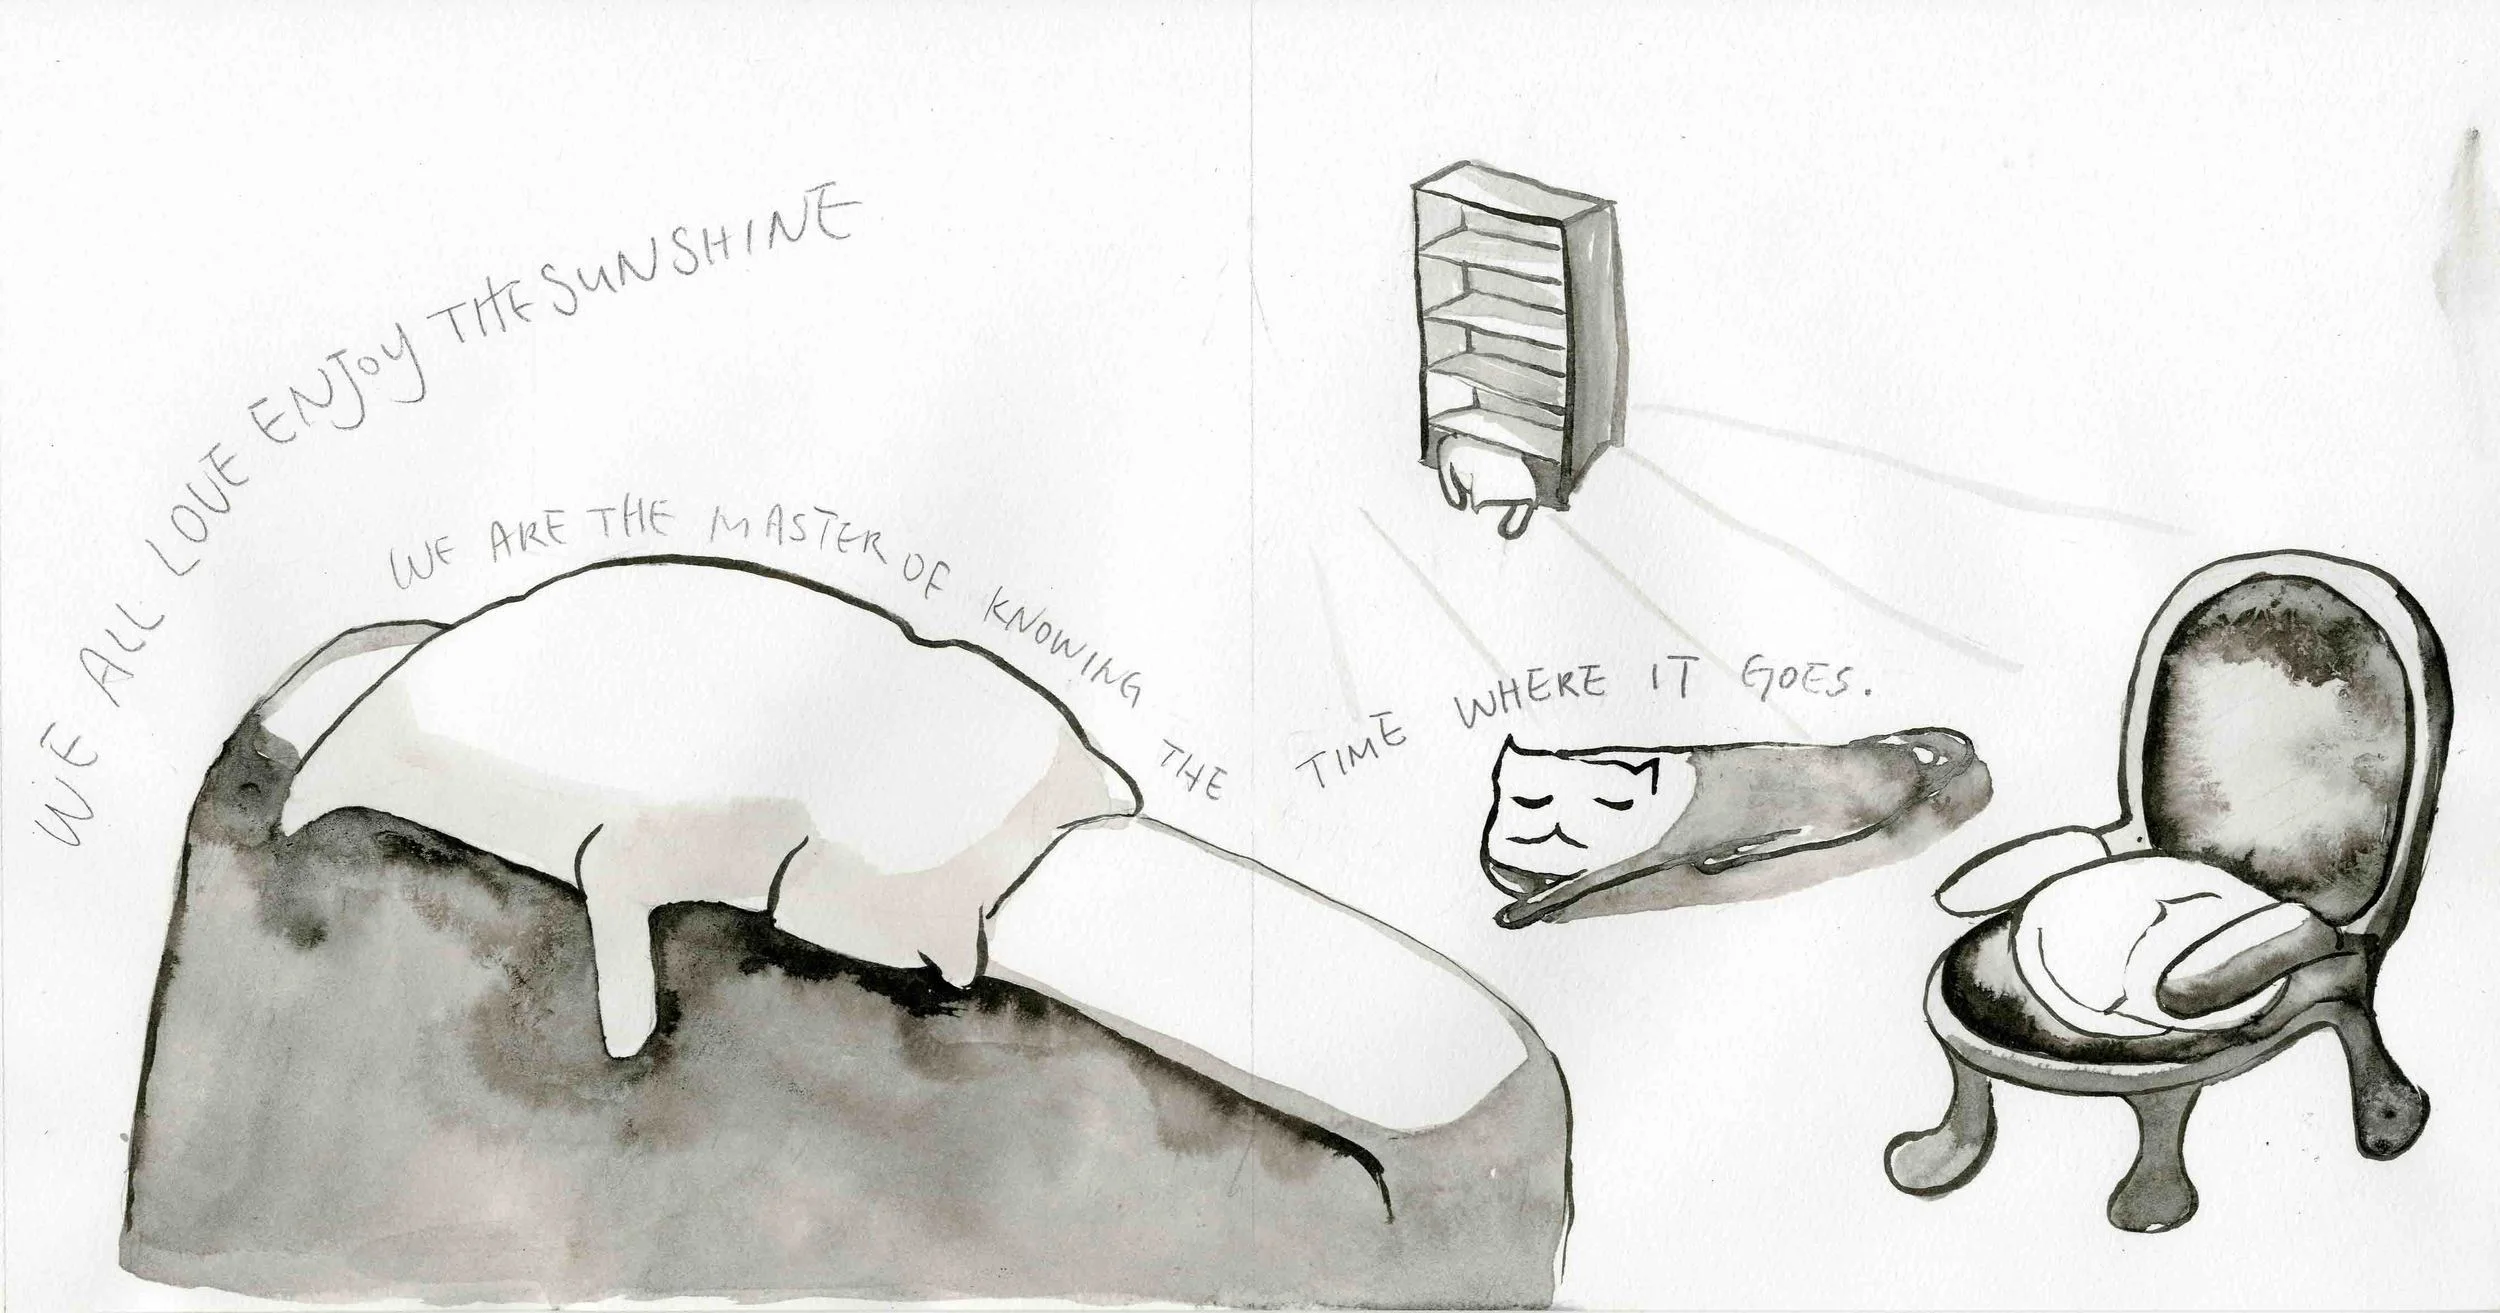 WE ALL LOVE ENJOY THE SUNSHINE
WE ARE THE MASTER OF KNOWING THE TIME WHERE IT GOES.